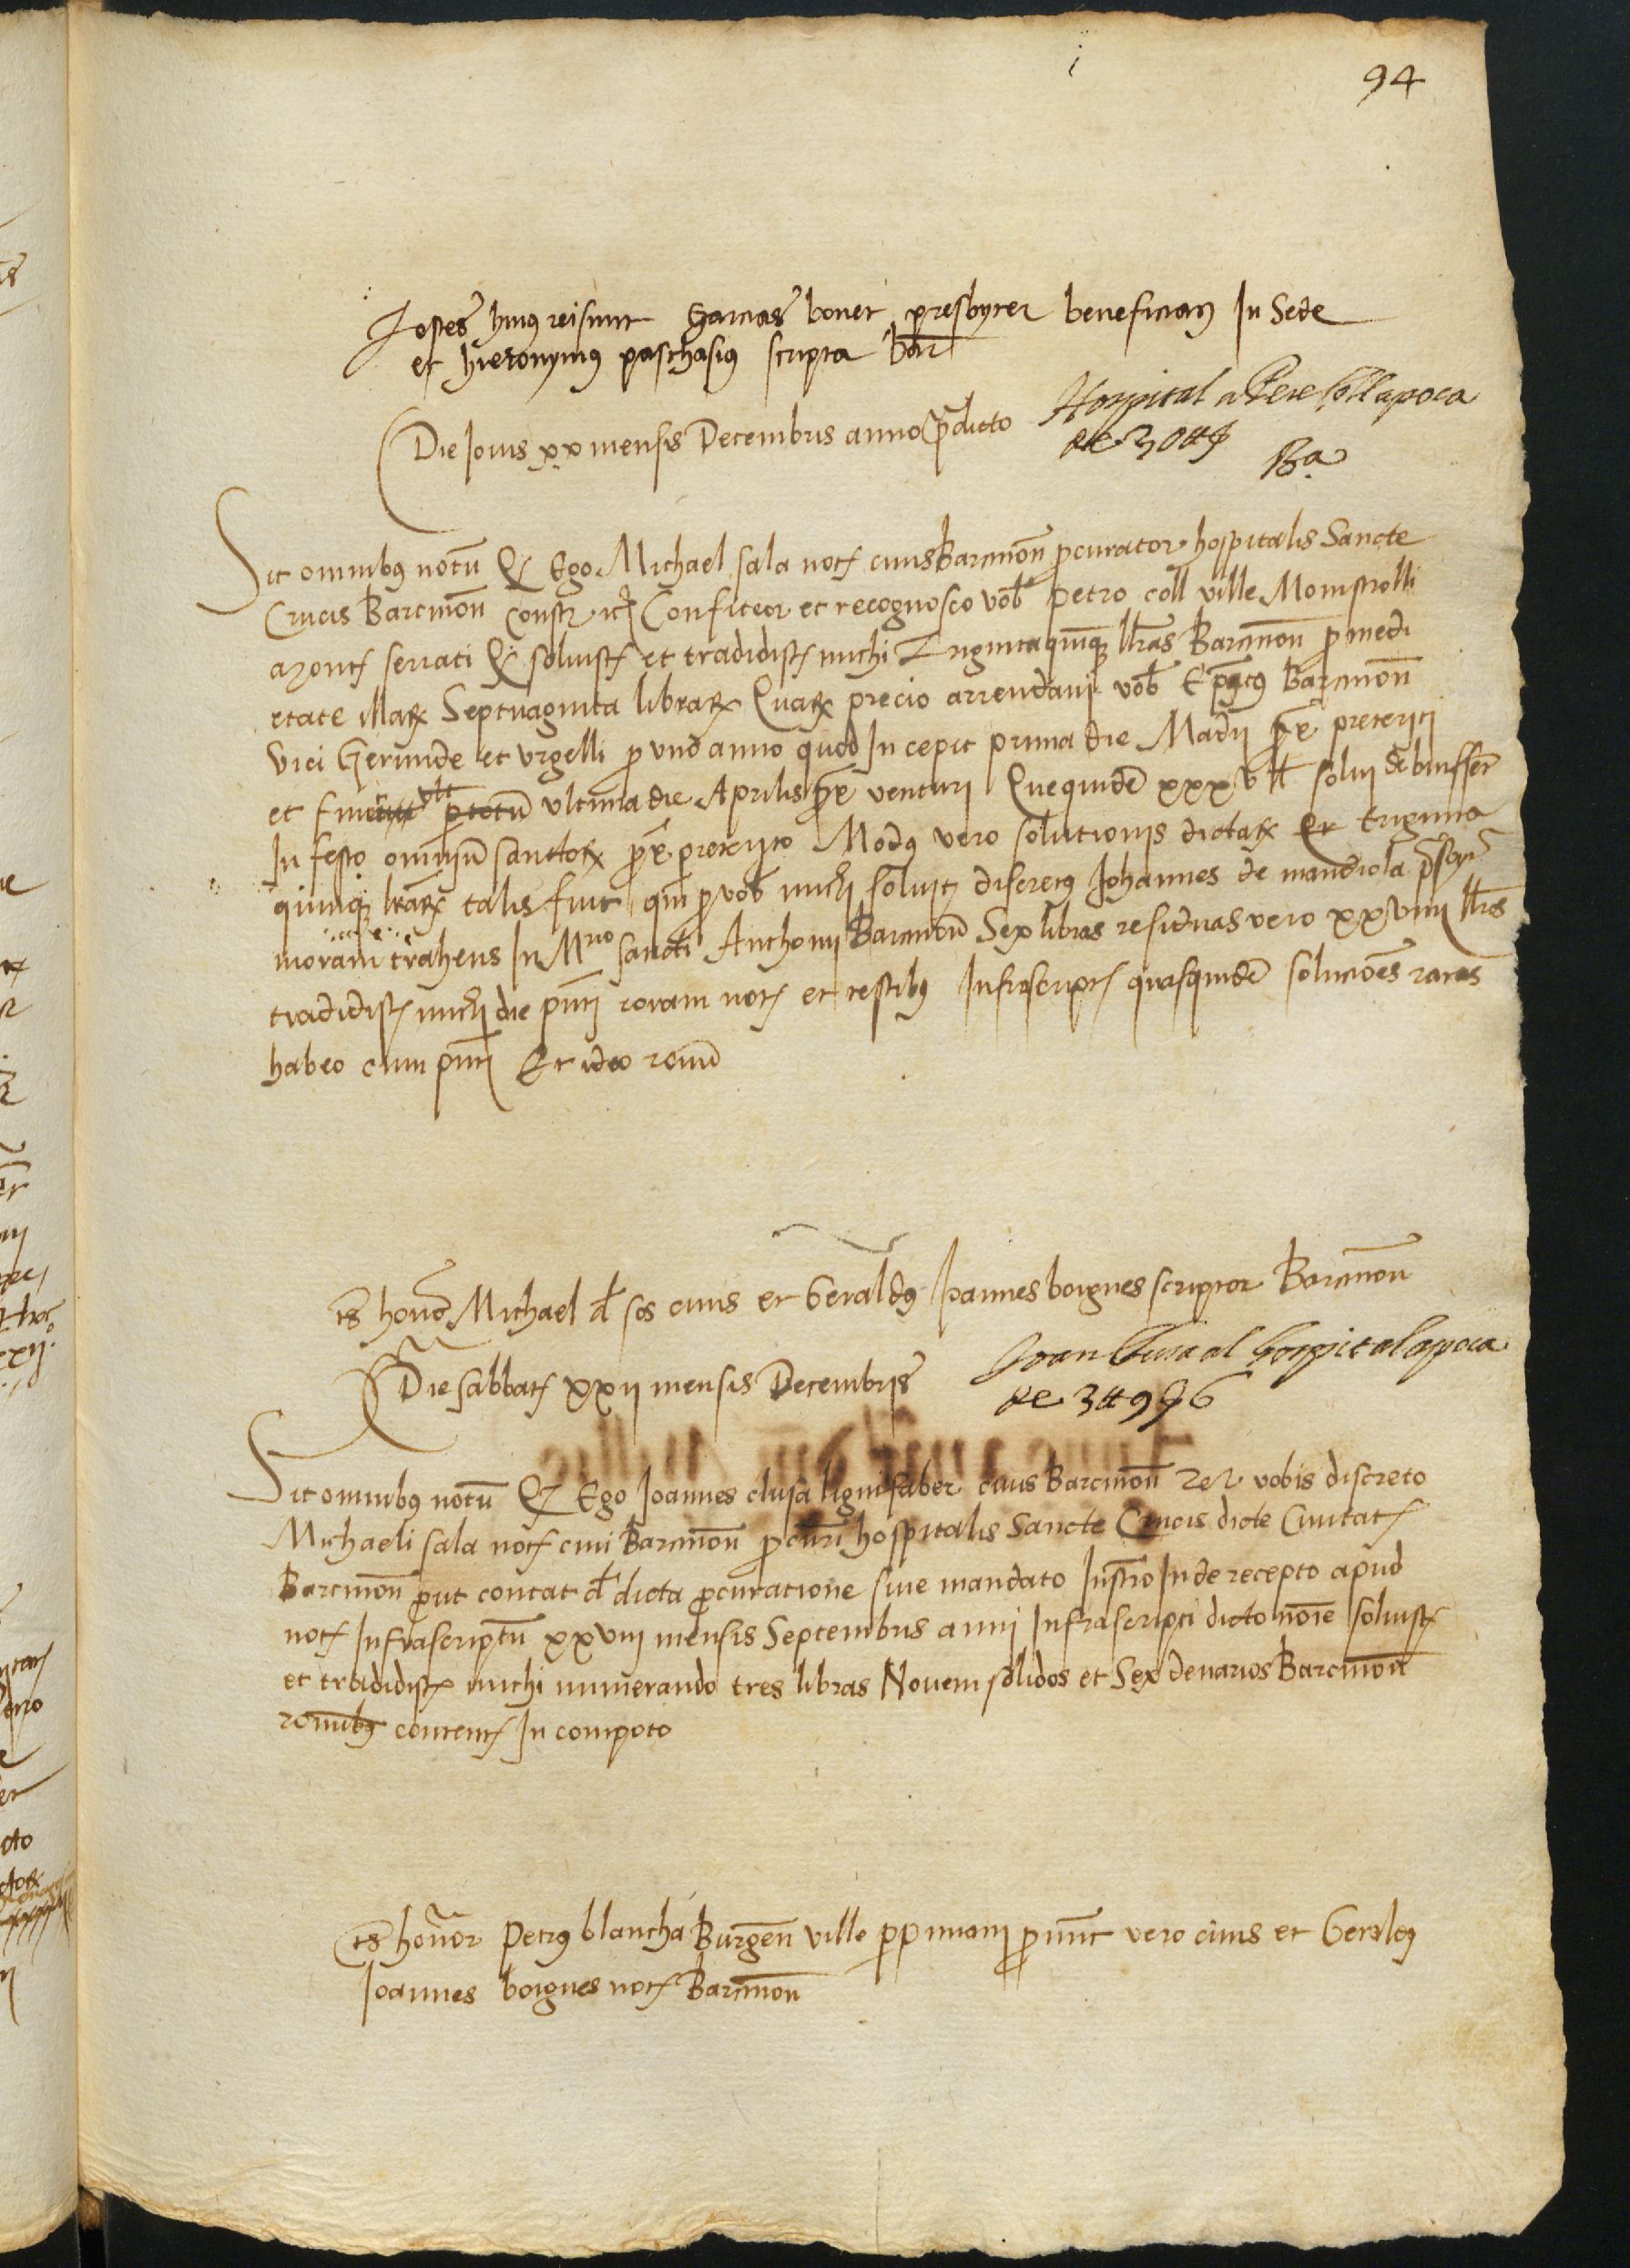 94
Testes huius rei sunt Garcias bonet presbyter beneficiatus In Sede
et hieronymus paschasius scripto bar
Die Jovis xx mensis Decembris anno predicto
Hospital a Pere Coll apoca
de 30 ℔
Ba
Sit omnibus notum Ego Michael sala not civis Barcinon procurator hospitalis Sancte
Crucis Barcinon constr Confiteor et recognosco vob petro coll ville Monistrolli
serrati solvist et tradidist michi Triginta quinque libras Barcinon pro medi
etate illarum Septuaginta librarum Quarum precio arrendavi vob Barcinon
Vici Gerunde et Urgelli pro uno anno quod In cepit prima die Madii preteriti
et finiet ultima die Aprilis venturi Que quidem xxxv ℔ solvi debuisser
In festo omnium sanctorum preterito Modus vero solutionis dictarum triginta
quinque librarum talis fuit qm pro vob michi solvit discretus Johannes de mandiola
moram trahens In Mrio sancti Anthonii Barcinon Sex libras residuas vero xxviiii libras
tradidist michi die pnti coram not et testibus Infrascript quasquidem solutiones ratas
habeo cum pnti Et ideo renun
ts honor Michael d sos civis et Geraldus Joannes boignes scriptor Barcinon
Die sabbati xxii mensis Decembris
Joan Clusa al hospital apoca
de 3 ℔ 9 s 6
Sit omnibus notum Ego Joannes clusa lignifaber civis Barcinon vobis discreto
Michaeli sala not civi Barcinon procuri hospitalis Sancte Crucis dicte Civitat
Barcinon prout constat d dicta procuratione sive mandato Instro Inde recepto apud
not Infrascriptum xxviii mensis Septembris anni Infrascripti dicto noie solvist
et tradidist michi numerando tres libras Novem solidos et Sex denarios Barcinon
content In compoto
ts honor Petrus blancha Burgen ville perpiniani pro nunc vero civis et
Joannes boignes not Barcinon